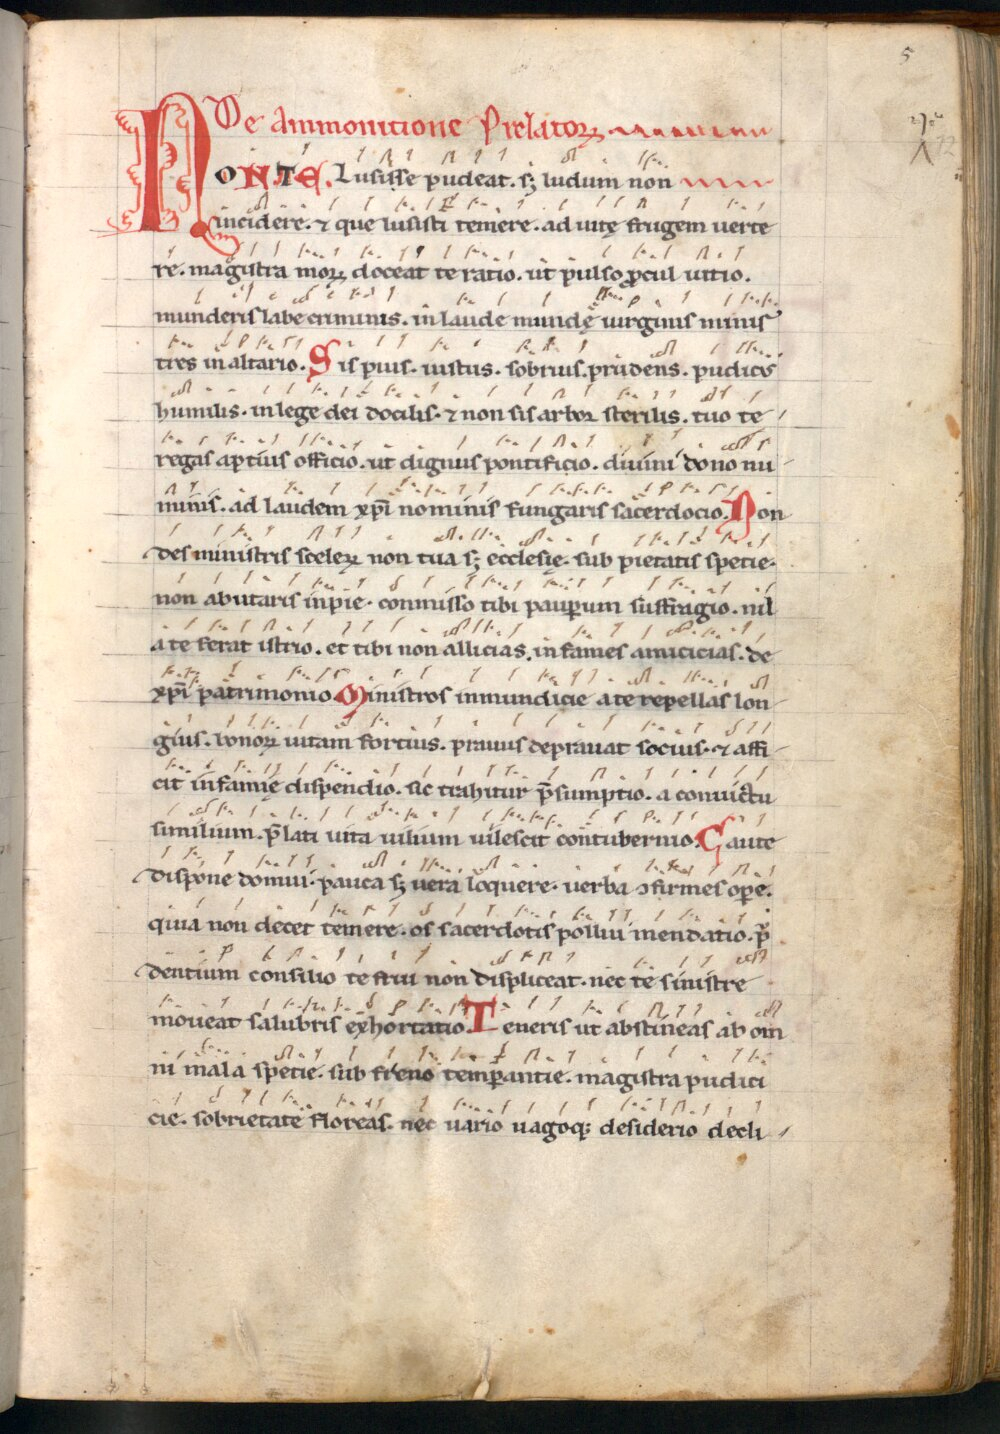 5
De Ammonitione Prelatorꝝ
NON TE. Lusisse pudeat. sꝫ ludum non
incidere. ⁊ que lusisti temere. ad uitę frugem uerte
re. magistra morꝝ doceat te ratio. ut pulso ꝓcul uitio.
munderis labe criminis. in laude mundę uirginis minis
tres in altario. Sis pius. iustus. sobrius. prudens. pudicus
humilis. in lege dei docilis. ⁊ non sis arbor sterilis. tuo te
regas aptius officio. ut dignus pontificio. diuini dono nu
minis. ad laudem xp̅i nominis fungaris sacerdocio. Non
des ministris scelerꝝ non tua sꝫ ecclesię. sub pietatis specie.
non abutaris inpie. commisso tibi pauꝑum suffragio. nil
a te ferat istrio. et tibi non allicias. infames amicicias. de
xp̅i patrimonio. Ministros inmundicie a te repellas lon
gius. bonorꝝ uitam fortius. prauus deprauat socius. ⁊ affi
cit infamię dispendio. sic trahitur p̅sumptio. a conuictu
similium. p̅lati uita uilium uilescit contubernio. Caute
dispone domui. pauca sꝫ uera loquere. uerba ↄfirmes oꝑe.
quia non decet temere. os sacerdotis pollui mendatio. p̅
dentium consilio te frui non displiceat. nec te sinistre
moueat salubris exhortatio. Teneris ut abstineas ab om
ni mala specie. sub freno temꝑantie. magistra pudici
cie. sobrietate floreas. nec uario uagoqꝫ desiderio decli